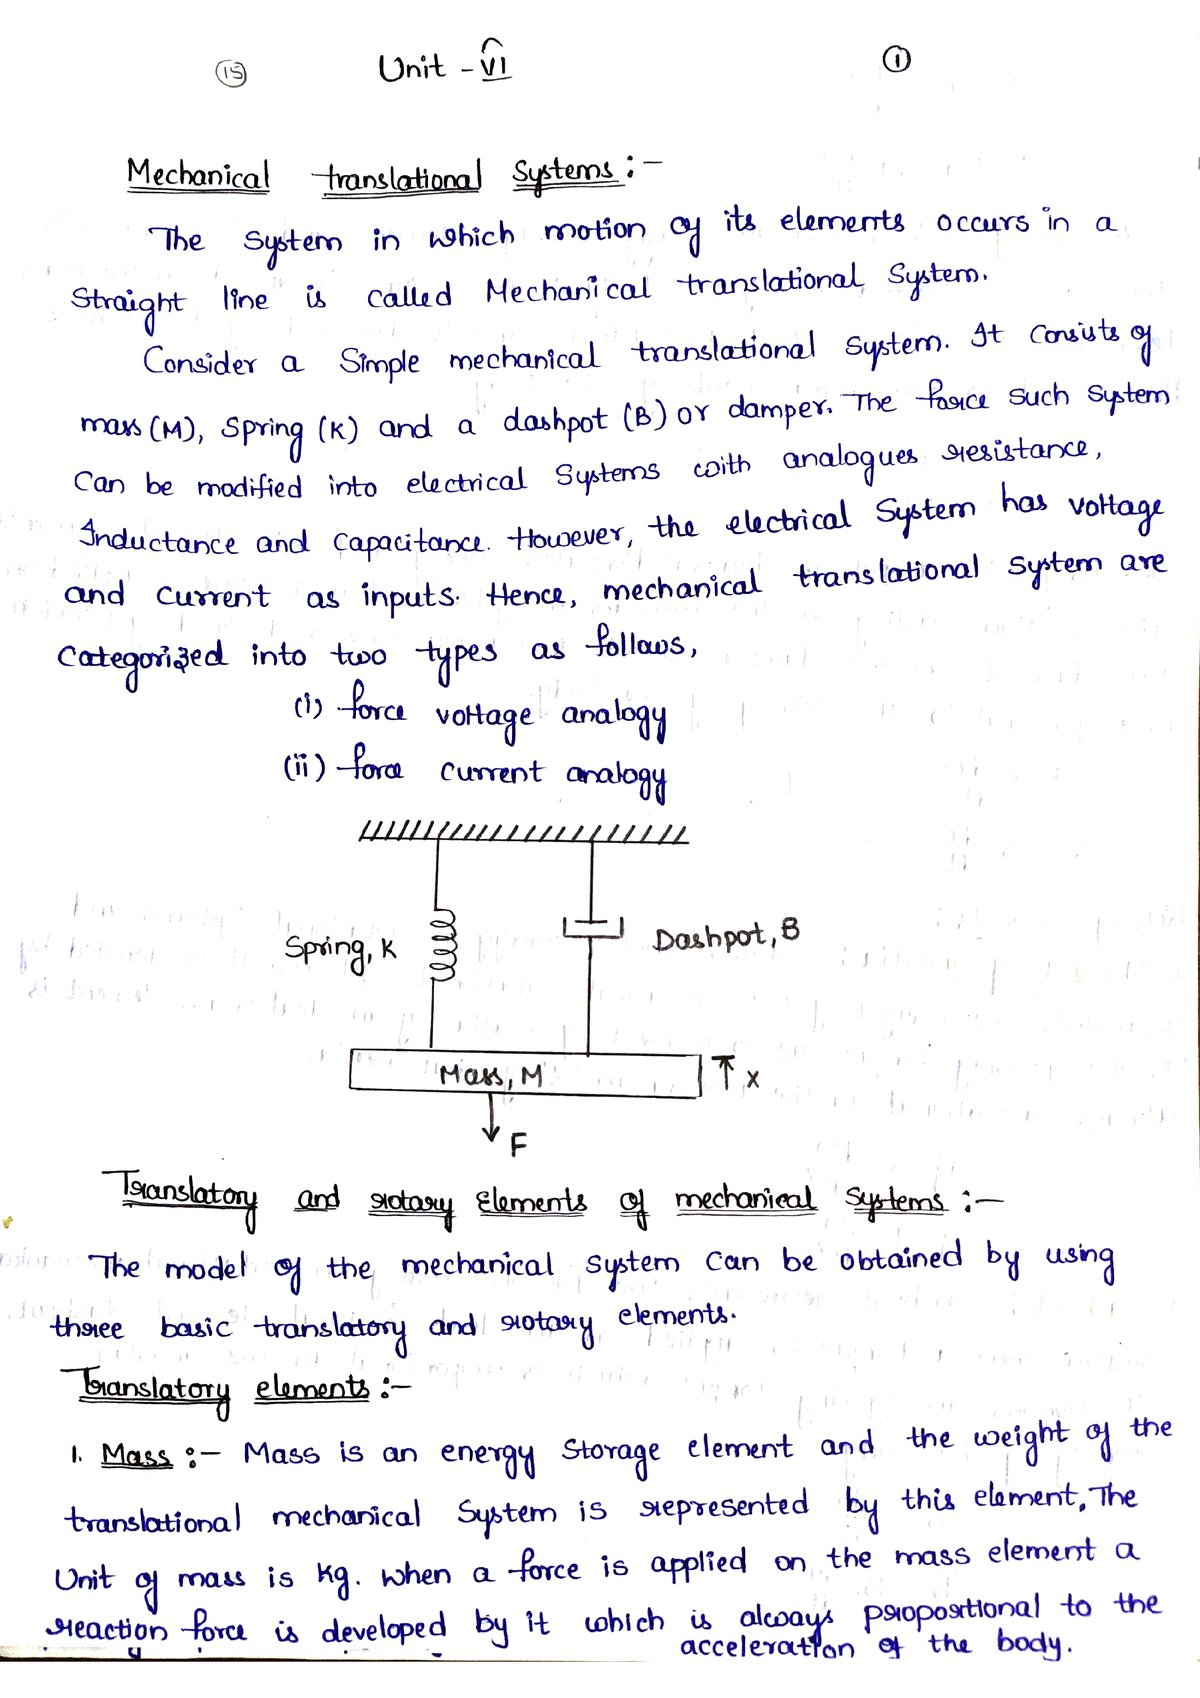 15
Unit - VI
1
Mechanical translational Systems :-
The System in which motion of its elements occurs in a
Straight line is called Mechanical translational System.
Consider a Simple mechanical translational System. It Consists of
mass (M), Spring (K) and a dashpot (B) or damper. The force such System
Can be modified into electrical Systems with analogues resistance,
Inductance and Capacitance. However, the electrical System has voltage
and current as inputs. Hence, mechanical translational System are
Categorized into two types as follows,
(i) force voltage analogy
(ii) force current analogy
Spring, K
Dashpot, B
Mass, M
X
F
Translatory and rotary Elements of mechanical Systems :-
The model of the mechanical System Can be obtained by using
three basic translatory and rotary elements.
Translatory elements :-
1. Mass :- Mass is an energy Storage element and the weight of the
translational mechanical System is represented by this element, The
Unit of mass is Kg. When a force is applied on the mass element a
reaction force is developed by it which is always proportional to the
acceleration of the body.